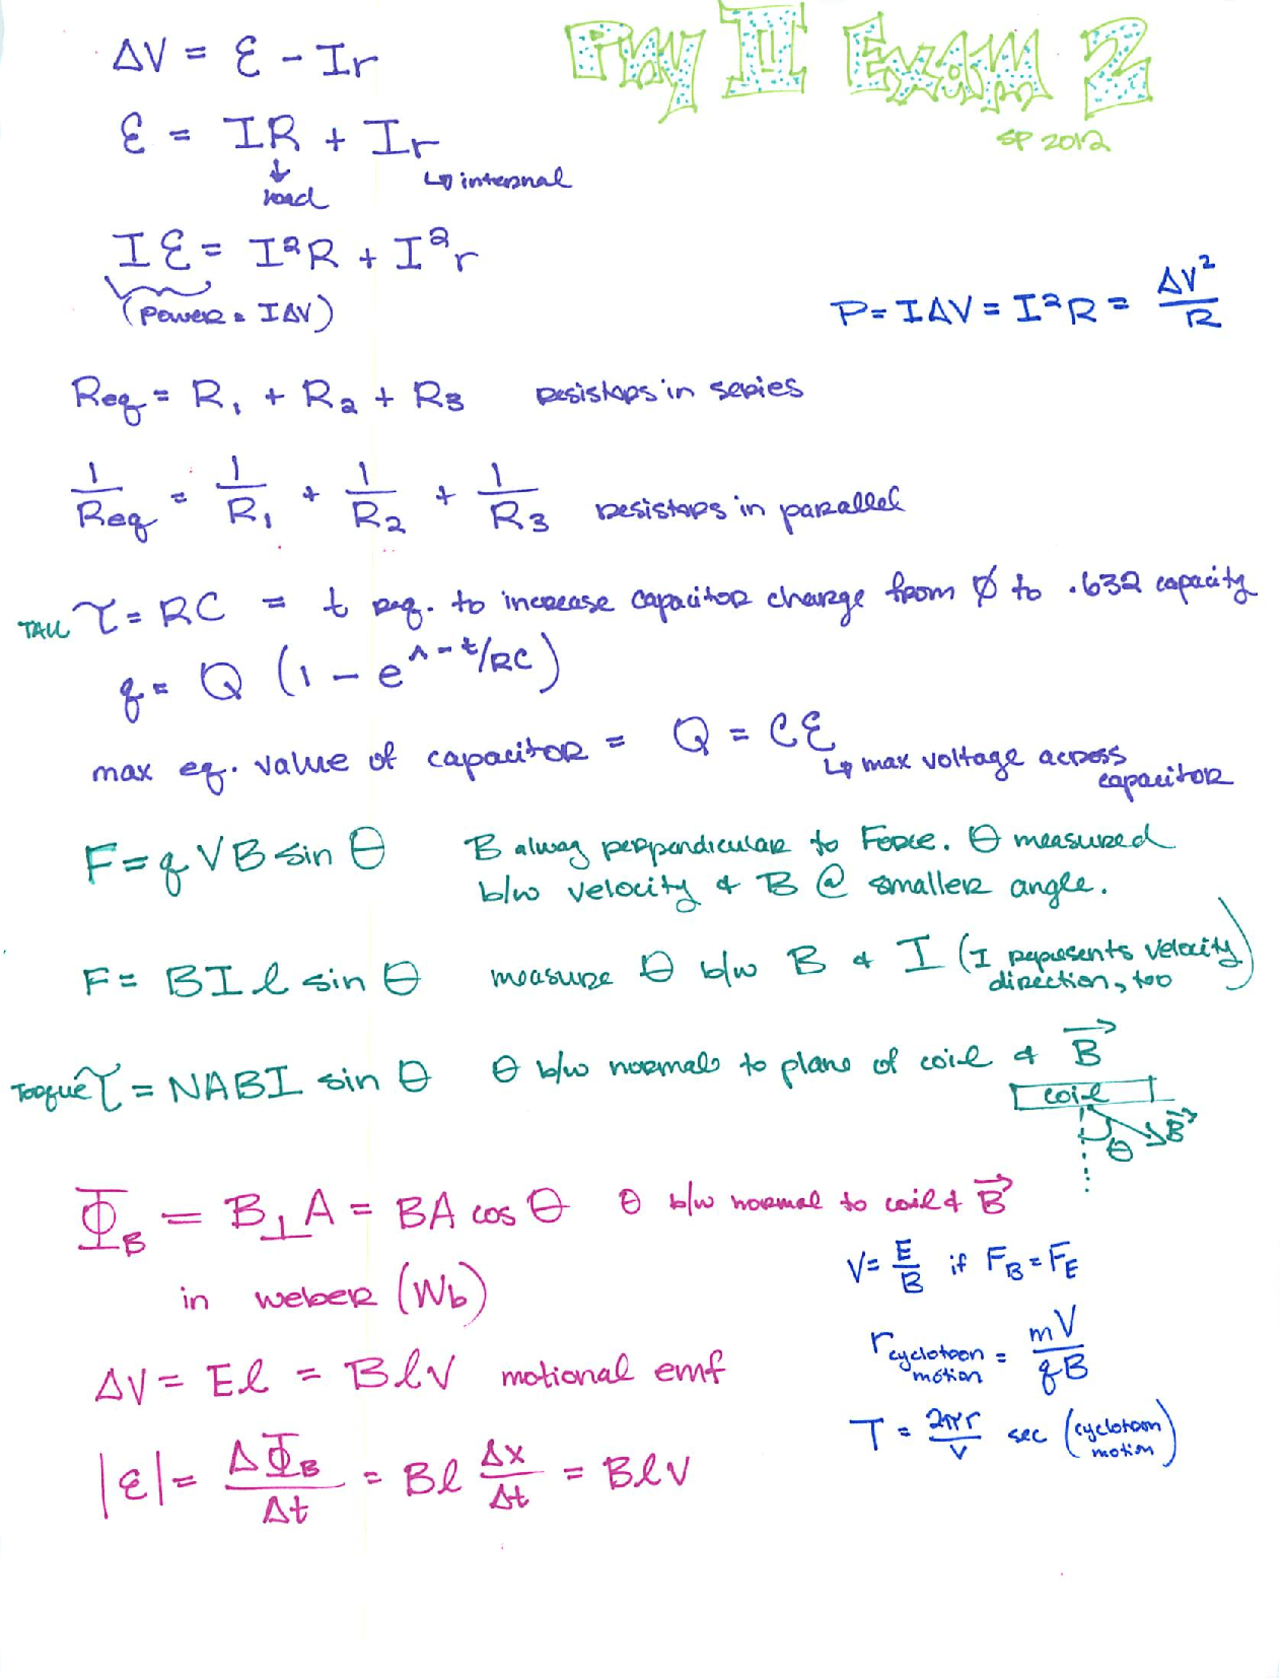 Phy II Exam 2
SP 2012
ΔV = ℰ - Ir
ℰ = IR + Ir
↓ load ↳ internal
Iℰ = I²R + I²r
(Power = IΔV)
P = IΔV = I²R = ΔV²/R
Req = R₁ + R₂ + R₃ resistors in series
1/Req = 1/R₁ + 1/R₂ + 1/R₃ resistors in parallel
TAU τ = RC = t req. to increase capacitor charge from Ø to .632 capacity
q = Q (1 - e^-t/RC)
max eq. value of capacitor = Q = Cℰ
↳ max voltage across
capacitor
F = qVB sin θ B alway perpendicular to Force. θ measured
b/w velocity & B @ smaller angle.
F = BIℓ sin θ measure θ b/w B & I (I represents velocity
direction, too)
Torque τ = NABI sin θ θ b/w normal to plane of coil & B⃗
coil
θ B⃗
Φ_B = B⊥A = BA cos θ θ b/w normal to coil & B⃗
in weber (Wb)
V = E/B if F_B = F_E
ΔV = Eℓ = BℓV motional emf
r cyclotron motion = mV/qB
T = 2πr/V sec (cyclotron motion)
|ℰ| = ΔΦ_B/Δt = Bℓ Δx/Δt = BℓV